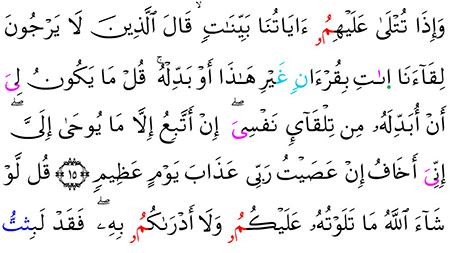 وَإِذَا تُتْلَىٰ عَلَيْهِمُۥ ءَايَاتُنَا بَيِّنَـٰتٖ ۙ قَالَ ٱلَّذِينَ لَا يَرْجُونَ
لِقَآءَنَا ٱئۡتِ بِقُرْءَانٍ غَيْرِ هَـٰذَا أَوْ بَدِّلْهُ ۚ قُلْ مَا يَكُونُ لِىَ
أَنْ أُبَدِّلَهُۥ مِن تِلْقَآئِ نَفْسِىَ ۖ إِنْ أَتَّبِعُ إِلَّا مَا يُوحَىٰ إِلَىَّ ۖ
إِنِّىَ أَخَافُ إِنْ عَصَيْتُ رَبِّى عَذَابَ يَوْمٍ عَظِيمٖ ﴿١٥﴾ قُل لَّوْ
شَآءَ ٱللَّهُ مَا تَلَوْتُهُۥ عَلَيْكُمُۥ وَلَا أَدْرَىٰكُمُۥ بِهِۦ ۖ فَقَدْ لَبِثتُّ